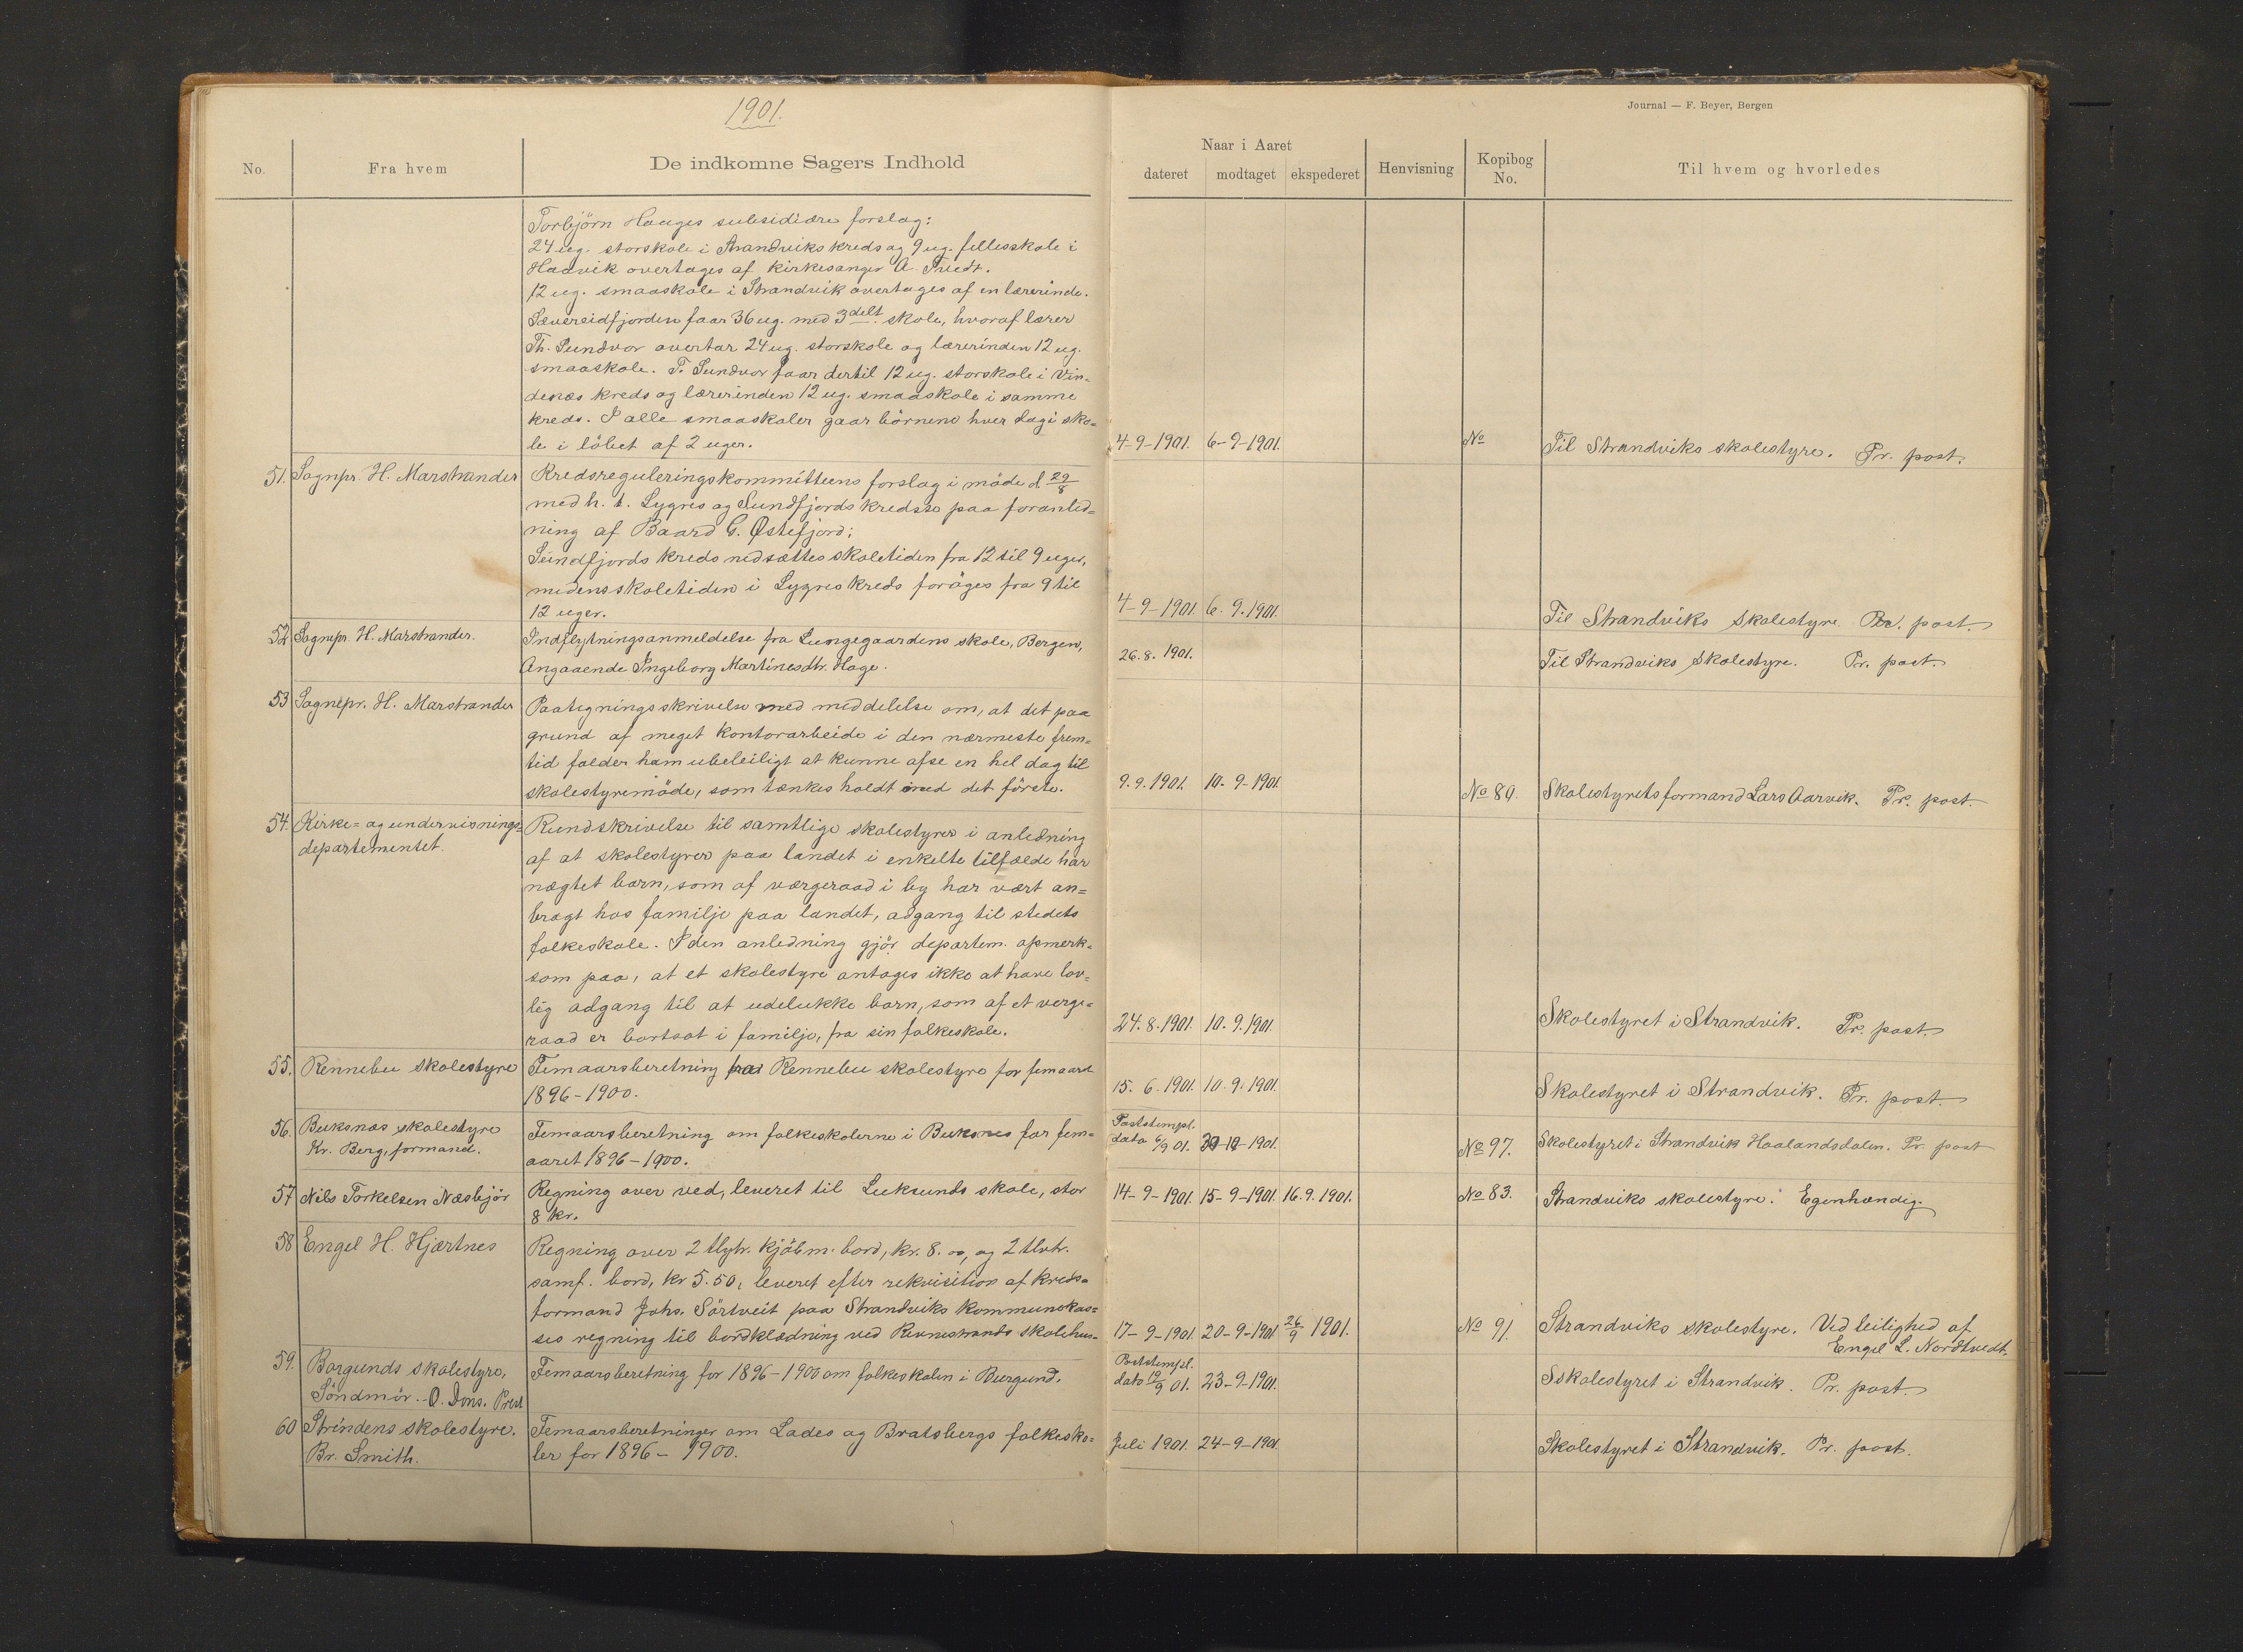 1901.
Journal — F. Beyer, Bergen
No.
Fra hvem
De indkomne Sagers Indhold
Naar i Aaret
dateret
modtaget
ekspederet
Henvisning
Kopibog No.
Til hvem og hvorledes
Torbjörn Haages subsidiære forslag:
24 ug. storskole i Strandviks kreds og 9 ug. fellesskole i
Haavik overtages af kirkesanger A. Tvedt.
12 ug. smaaskole i Strandvik overtages af en lærerinde.
Sævereidfjorden faar 36 ug. med 3delt. skole, hvoraf lærer
Th. Sundvor overtar 24 ug. storskole og lærerinden 12 ug.
smaaskole. T. Sundvor faar dertil 12 ug. storskole i Vin=
denæs kreds og lærerinden 12 ug. smaaskole i samme
kreds. I alle smaaskoler gaar börnene hver dag i sko=
le i löbet af 2 uger.
4-9-1901. 6-9-1901. No Til Strandviks skolestyre. Pr. post.
51. Sognepr. H. Marstrander Kredsreguleringskommitteens forslag i möde d. 29/8
med h. t. Lygres og Sundfjords kredse paa foranled=
ning af Baard G. Østefjord:
Sundfjords kreds nedsættes skoletiden fra 12 til 9 uger,
medens skoletiden i Lygres kreds foröges fra 9 til
12 uger.
4-9-1901. 6.9.1901. Til Strandviks skolestyre Pr. post.
52 Sognepr. H. Marstrander. Indflytningsanmeldelse fra Lungegaardens skole, Bergen,
Angaaende Ingeborg Martinesdtr. Hage.
26.8.1901. Til Strandviks skolestyre. Pr. post.
53 Sognepr. H. Marstrander Paategningsskrivelse med meddelelse om, at det paa
grund af meget kontorarbeide i den nærmeste frem=
tid falder ham ubeleiligt at kunne afse en hel dag til
skolestyremöde, som tænkes holdt med det förste.
9.9.1901. 10-9-1901. No 80. Skolestyrets formand Lars Aarvik. Pr. post.
54. Kirke= og undervisnings=
departementet.
Rundskrivelse til samtlige skolestyrer i anledning
af at skolestyrer paa landet i enkelte tilfælde har
nægtet barn, som af værgeraad i by har vært an=
bragt hos familje paa landet, adgang til stedets
folkeskole. I den anledning gjör departem. opmerk=
som paa, at et skolestyre antages ikke at have lov=
lig adgang til at udelukke barn, som af et verge=
raad er bortsat i familje, fra sin folkeskole.
24.8.1901. 10.9.1901. Skolestyret i Strandvik. Pr. post.
55. Rennebu skolestyre Femaarsberetning fra Rennebu skolestyre for femaaret
1896-1900.
15.6.1901. 10.9.1901. Skolestyret i Strandvik. Pr. post.
56. Buksnæs skolestyre
Kr. Berg, formand.
Femaarsberetning om folkeskolerne i Buksnes for fem=
aaret 1896-1900.
Poststempl.
dato 6/9 01. 1901. No 97. Skolestyret i Strandvik Haalandsdalen. Pr. post
57 Nils Torkelsen Næsbjör Regning over ved, leveret til Luksunds skole, stor
8 kr.
14-9-1901. 15-9-1901. 16.9.1901. No 83. Strandviks skolestyre. Egenhændig.
58 Engel H. Hjærtnes Regning over 2 tlvtr. kjöbm. bord, kr. 8.00, og 2 tlvtr.
samf. bord, kr 5.50, leveret efter rekvisition af kreds=
formand Johs. Sörtveit paa Strandviks kommunekas=
ses regning til bordklædning ved Revnestrands skolehus.
17-9-1901. 20-9-1901. 26/9 1901. No 91. Strandviks skolestyre. Ved leilighed af
Engel L. Nordtvedt.
59. Borgunds skolestyre,
Söndmör. - O. Dons. Prest
Femaarsberetning for 1896-1900 om folkeskolen i Borgund.
Poststempl.
dato 19/9 01. 23-9-1901. Sskolestyret i Strandvik. Pr. post.
60 Strindens skolestyre.
Br. Smith.
Femaarsberetninger om Lades og Bratsbergs folkesko=
ler for 1896-1900.
Juli 1901. 24-9-1901. Skolestyret i Strandvik. Pr. post.